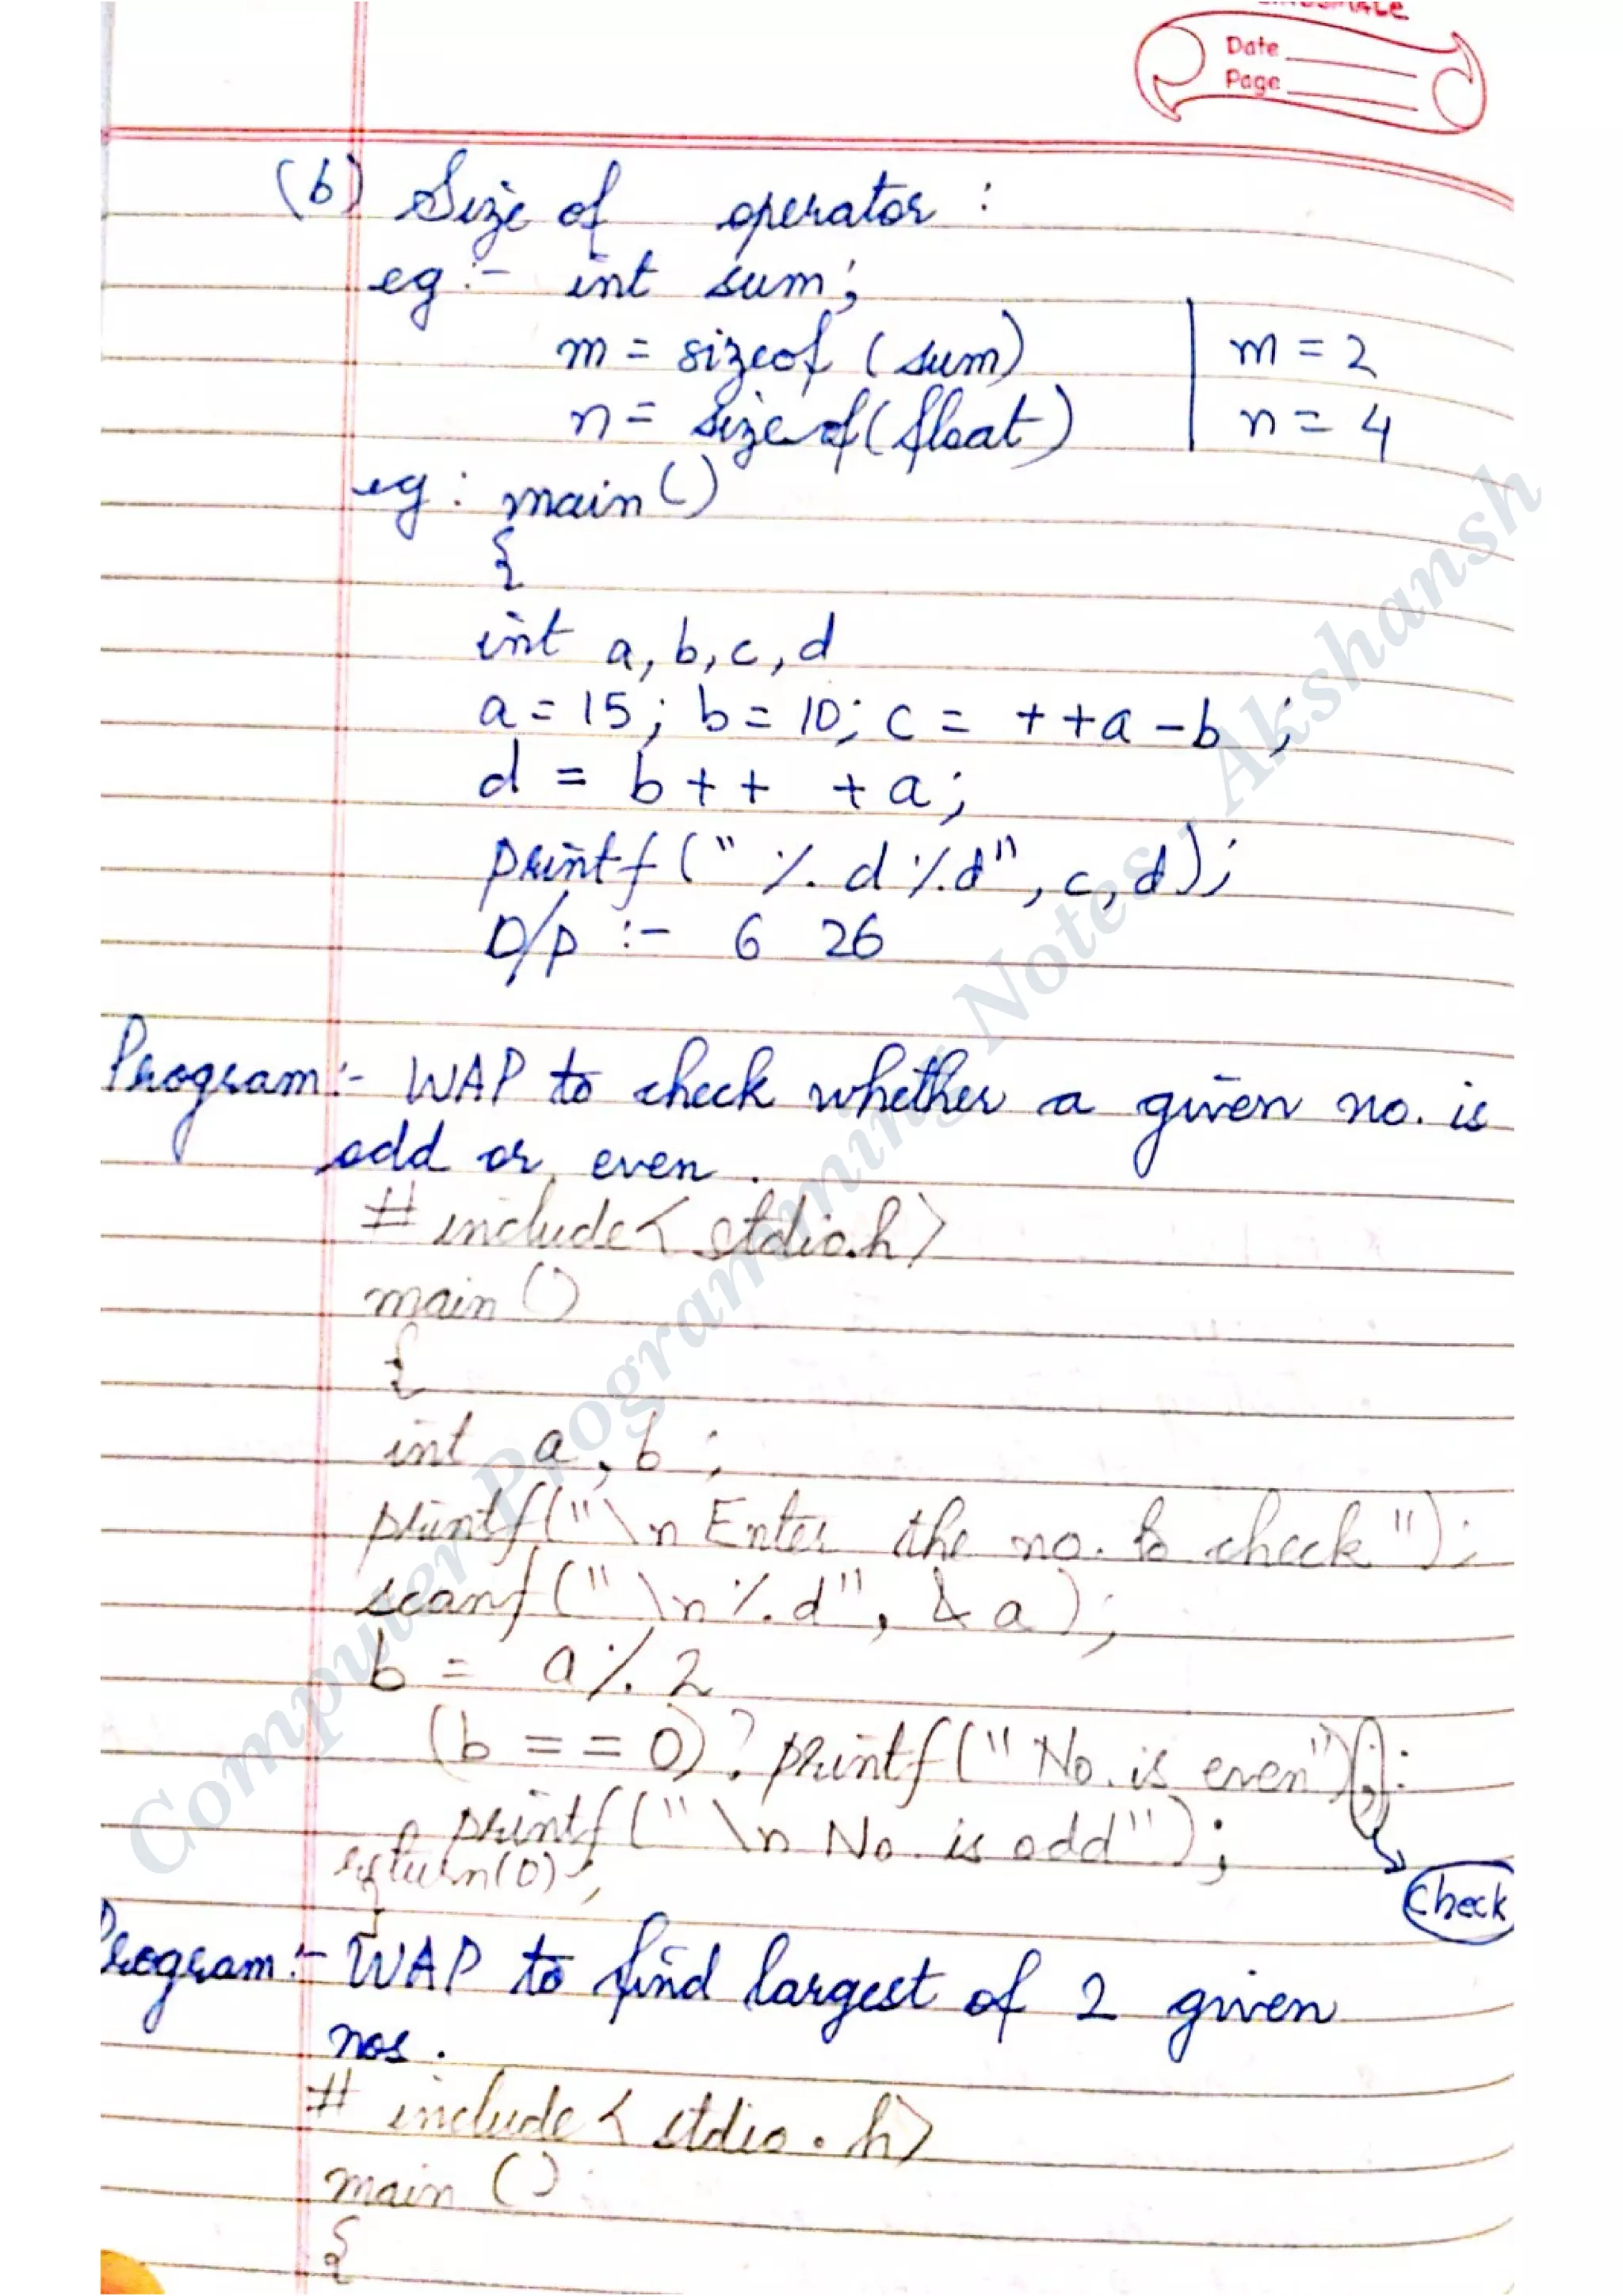 Date
Page
(b) Size of operator :
eg :- int sum;
m = sizeof (sum) | m = 2
n = sizeof (float) | n = 4
eg : main()
{
int a, b, c, d
a = 15; b = 10; c = ++a - b ;
d = b++ +a;
printf(" %d %d", c, d);
O/p :- 6 26
Program:- WAP to check whether a given no. is
odd or even .
# include < stdio.h>
main ()
{
int a, b ;
printf("\n Enter the no. to check");
scanf("\n %d", & a);
b = a % 2
(b == 0)? printf("No. is even"); :
printf("\n No. is odd");
return(0);
}
Check
Program:- WAP to find largest of 2 given
nos .
# include < stdio.h>
main ()
{
Computer Programming Notes - Akshansh